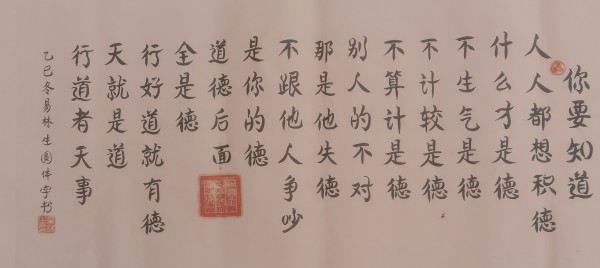 你要知道
人人都想积德
什么才是德
不生气是德
不计较是德
不算计是德
别人的不对
那是他失德
不跟他人争吵
是你的德
道德后面
全是德
行好道就有德
天就是道
行道者天事
乙巳冬易林生圆体字书